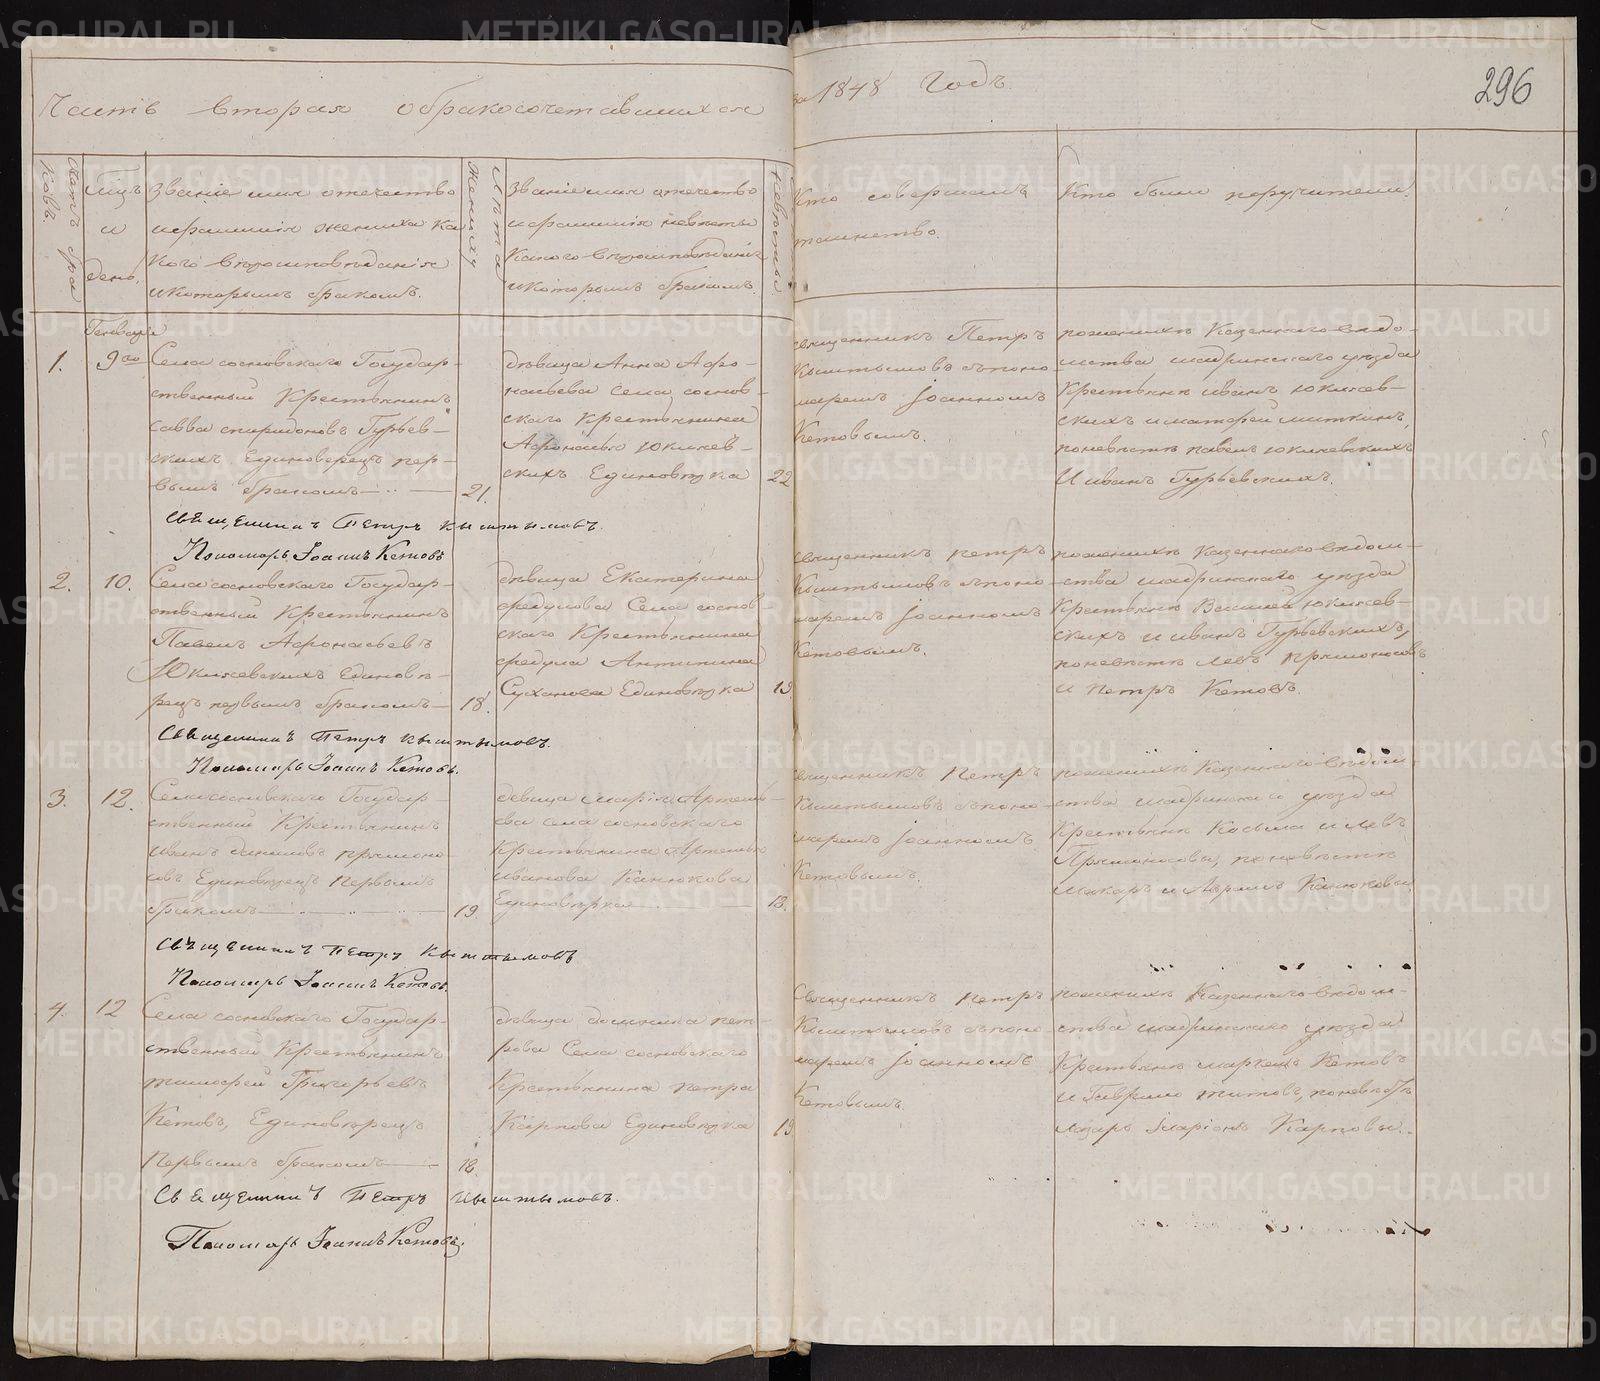 Часть вторая о бракосочетавшихся
за 1848 Годъ.
296
Счетъ бра
ковъ.
Мцъ
и
день.
Званiе имя отечество
и фамилiя жениха ка
кого вѣроисповѣданiя
и которымъ бракомъ.
Лѣта
жениха
Званiе имя отечество
и фамилiя невѣсты
какого вѣроисповѣданiя
и которымъ бракомъ.
невѣсты
Кто совершалъ
таинство.
Кто были поручители.
Генваря
1.
9го
Села сосновскаго Государ-
ственный Крестьянинъ
Савва спиридоновъ Гурьев-
скихъ Единоверецъ пер-
вымъ бракомъ
21.
дѣвица Анна Афо-
насьева села соснов-
скаго Крестьянина
Афонасья Юкляев-
скихъ Единовѣрка
22
священникъ Петръ
Кыштымовъ съ поно-
маремъ Iоанномъ
Кетовымъ.
по женихѣ Казеннаго вѣдо-
мства шадринскаго уѣзда
Крестьяне иванъ Юкляев-
скихъ и матфей миткинъ,
по невѣстѣ павелъ Юкляевскихъ
И иванъ Гурьевскихъ.
Священникъ Петръ Кыштымовъ.
Пономарь Iоаннъ Кетовъ
2.
10.
Села сосновскаго Государ-
ственный Крестьянинъ
Павелъ Афонасьевъ
Юкляевскихъ Единовѣ-
рецъ первымъ бракомъ
18.
дѣвица Екатерина
федулова Села соснов-
скаго Крестьянина
федула Антипина
Суханова Единовѣрка
19.
священникъ петръ
Кыштымовъ съ поно-
маремъ Iоанномъ
Кетовымъ.
по женихѣ Казеннаго вѣдом-
ства шадринскаго уѣзда
Крестьяне Василей Юкляев-
скихъ и иванъ Гурьевскихъ,
по невѣстѣ левъ прямоносовъ
И петръ Кетовъ.
Священникъ Петръ Кыштымовъ.
Пономарь Iоаннъ Кетовъ.
3.
12.
Села сосновскаго Государ-
ственный Крестьянинъ
иванъ даниловъ прямоно-
совъ Единовѣрецъ первымъ
бракомъ
19.
девица марiя Артемь-
ева села сосновскаго
Крестьянина Артемья
иванова Канюкова
Единовѣрка
18.
священникъ петръ
Кыштымовъ съ поно-
маремъ Iоанномъ
Кетовымъ.
по женихѣ Казеннаго вѣдом-
ства шадринскаго уѣзда
Крестьяне Косьма и левъ
Прямоносовы, по невѣстѣ
макаръ и Аврамъ Канюковы
Священникъ Петръ Кыштымовъ
Пономарь Iоаннъ Кетовъ.
4.
12
Села сосновскаго Государ-
ственный Крестьянинъ
тимофей Григорьевъ
Кетовъ, Единовѣрецъ
первымъ бракомъ
18.
дѣвица домника пет-
рова Села сосновскаго
Крестьянина петра
Карпова Единовѣрка
19
Священникъ петръ
Кыштымовъ съ поно-
маремъ Iоанномъ
Кетовымъ.
по женихѣ Казеннаго вѣдом-
ства шадринскаго уѣзда
Крестьяне маркелъ Кетовъ
и Гаврило титовъ, по невѣстѣ
лазарь иларiонъ Карповы.
Священникъ Петръ Кыштымовъ.
Пономарь Iоаннъ Кетовъ.
METRIKI.GASO-URAL.RU